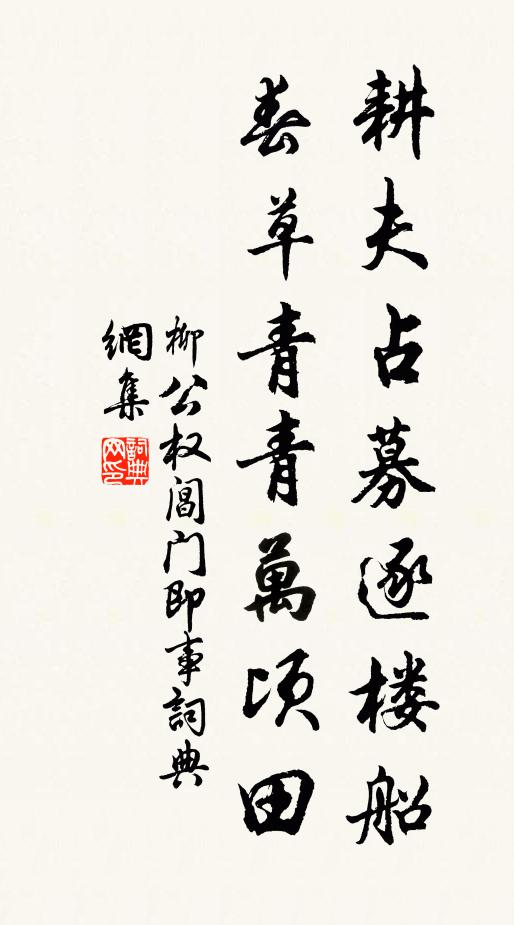 耕夫占募逐楼船
春草青青萬頃田
柳公权閶门即事詞典
網集
詞典
网印